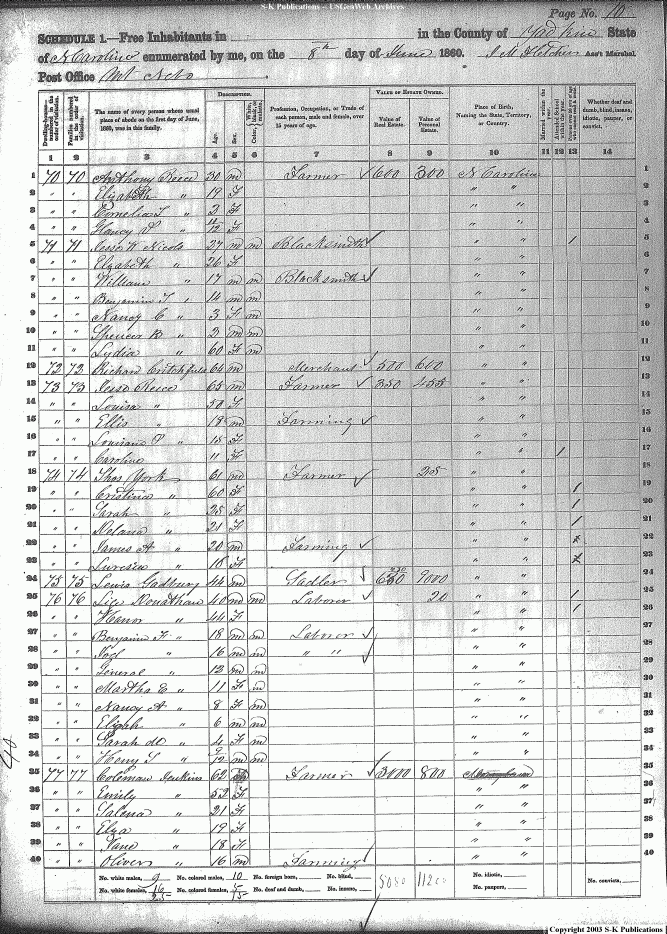 S-K Publications - USGenWeb Archives
Page No. 10
SCHEDULE 1.—Free Inhabitants in in the County of Yadkin State
of N Carolina enumerated by me, on the 8th day of June 1860. Ass't Marshal
Post Office Mt Nebo
DESCRIPTION. VALUE OF ESTATE OWNED.
Dwelling-houses—numbered in the order of visitation. Families numbered in the order of visitation. The name of every person whose usual place of abode on the first day of June, 1860, was in this family. Age. Sex. Color, White, black, or mulatto. Profession, Occupation, or Trade of each person, male and female, over 15 years of age. Value of Real Estate. Value of Personal Estate. Place of Birth, Naming the State, Territory, or Country. Married within the year. Attended School within the year. Whether deaf and dumb, blind, insane, idiotic, pauper, or convict.
1 2 3 4 5 6 7 8 9 10 11 12 13 14
1 70 70 Anthony Reece 30 m Farmer 600 300 N Carolina 1
2 " " Elizabeth " 19 F " " 2
3 " " Cornelia T " 2 F " " 3
4 " " Nancy " 11/12 F " " 4
5 71 71 Jesse W Nicols 27 m m Blacksmith " " 1 5
6 " " Elizabeth " 26 F " " 6
7 " " William " 17 m m Blacksmith " " 7
8 " " Benjamin T " 14 m m " " 8
9 " " Nancy C " 3 F m " " 9
10 " " Spencer B " 2 m m " " 10
11 " " Lydia " 60 F m " " 11
12 72 72 Richard Critchfield 64 m Merchant 500 600 " " 12
13 73 73 Jesse Reece 65 m Farmer 350 455 " " 13
14 " " Louisa " 50 F " " 14
15 " " Ellis " 18 m Farming " " 15
16 " " Louisana P " 15 F " " 16
17 " " Caroline " 11 F " " 1 17
18 74 74 Thos York 61 m Farmer 25 " " 18
19 " " Cristina " 60 F " " 1 19
20 " " Sarah " 25 F " " 1 20
21 " " Roland " 21 F " " 1 21
22 " " James A " 20 m Farming " " 22
23 " " " 18 F " " 23
24 75 75 Lewis Gadbury 44 m Sadler 9000 " " 24
25 76 76 Donathan 40 m m Laborer 20 " " 1 25
26 " " " 44 F " " 1 26
27 " " Benjamin F " 18 m m Laborer " " 27
28 " " " 16 m m " " " " 28
29 " " General " 13 m m " " 29
30 " " Martha E " 11 F m " " 30
31 " " Nancy A " 8 F m " " 31
32 " " Elijah " 6 m m " " 32
33 " " Sarah " 4 F m " " 33
34 " " Henry T " 9/12 m m " " 34
35 77 77 Coleman Jenkins 62 m Farmer 3000 800 35
36 " " Emily " 52 F " " 36
37 " " Salena " 21 F " " 37
38 " " Elza " 19 F " " 38
39 " " Jane " 18 F " " 39
40 " " Oliver " 16 m Farming " " 40
No. white males, 9 No. colored males, 10 No. foreign born, No. blind, 5080 11200 No. idiotic, No. convicts,
No. white females, 16 No. colored females, 5 No. deaf and dumb, No. insane, No. paupers,
25 15
40
Copyright 2003 S-K Publications